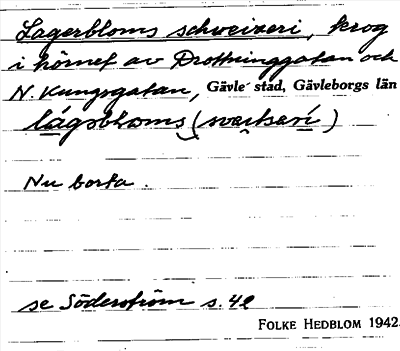 Lagerbloms schweizeri, krog
i hörnet av Drottninggatan och
N. Kungsgatan, Gävle stad, Gävleborgs län
lágərbloms (swɛitseri)
Nu borta.
se Söderström s. 42
FOLKE HEDBLOM 1942.